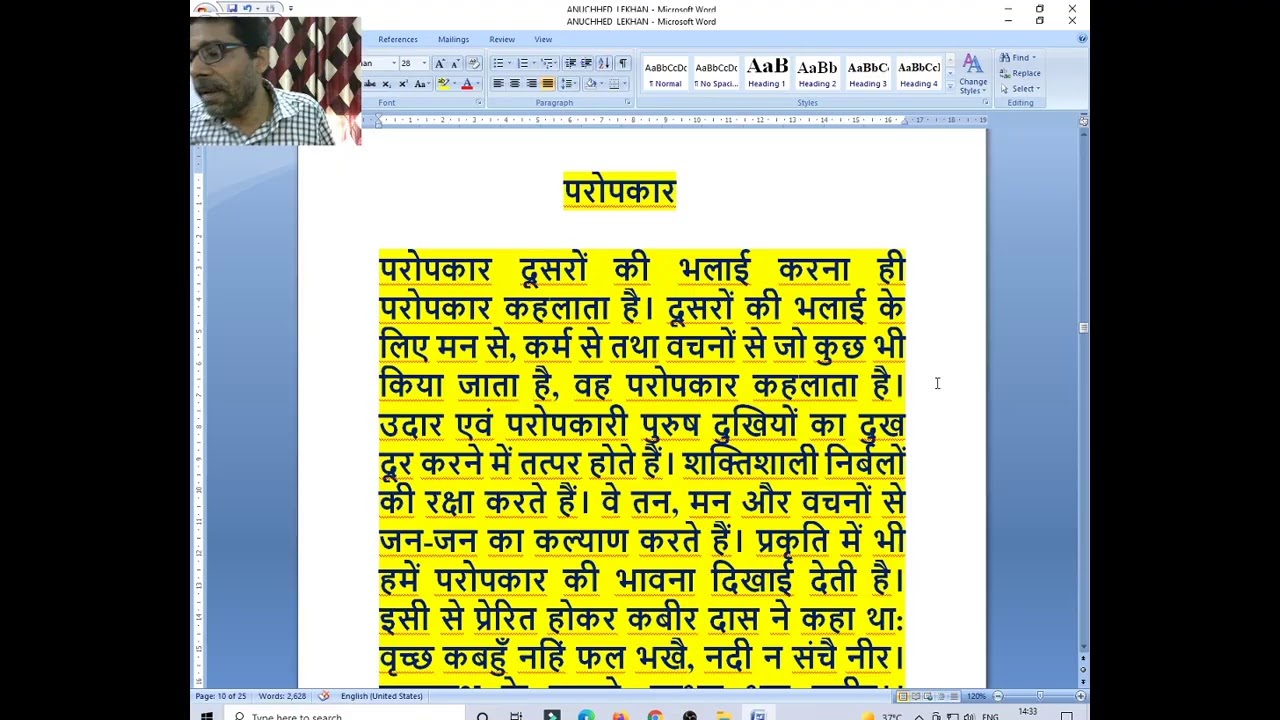 ANUCHHED LEKHAN - Microsoft Word
ANUCHHED LEKHAN - Microsoft Word
References Mailings Review View
28
AaBbCcDc AaBbCcDc AaB AaBb AaBbC AaBbCcI
¶ Normal ¶ No Spaci... Heading 1 Heading 2 Heading 3 Heading 4
Change Styles
Find
Replace
Select
Font Paragraph Styles Editing
परोपकार
परोपकार दूसरों की भलाई करना ही
परोपकार कहलाता है। दूसरों की भलाई के
लिए मन से, कर्म से तथा वचनों से जो कुछ भी
किया जाता है, वह परोपकार कहलाता है।
उदार एवं परोपकारी पुरुष दुखियों का दुख
दूर करने में तत्पर होते हैं। शक्तिशाली निर्बलों
की रक्षा करते हैं। वे तन, मन और वचनों से
जन-जन का कल्याण करते हैं। प्रकृति में भी
हमें परोपकार की भावना दिखाई देती है।
इसी से प्रेरित होकर कबीर दास ने कहा था:
वृच्छ कबहुँ नहिं फल भखै, नदी न संचै नीर।
Page: 10 of 25 Words: 2,628 English (United States) 120%
Type here to search 37°C ENG 14:33